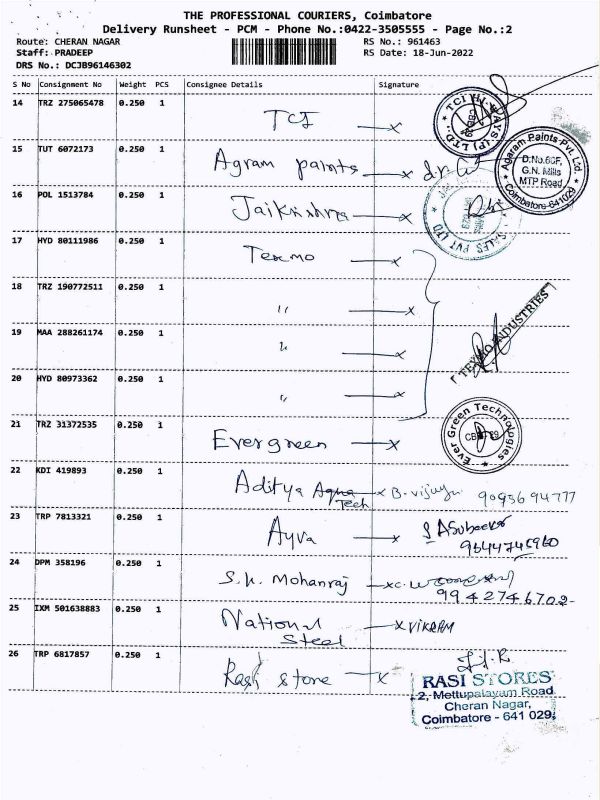 THE PROFESSIONAL COURIERS, Coimbatore
Delivery Runsheet - PCM - Phone No.:0422-3505555 - Page No.:2
Route: CHERAN NAGAR RS No.: 961463
Staff: PRADEEP RS Date: 18-Jun-2022
DRS No.: DCJB96146302
S No Consignment No Weight PCS Consignee Details Signature
14 TRZ 275065478 0.250 1 TCI x
15 TUT 6072173 0.250 1 Agram paints x
Agaram Paints Pvt. Ltd.
D.No.60F,
G.N. Mills
MTP Road
Coimbatore-641029
16 POL 1513784 0.250 1 Jaikrishna x
SALES PVT LTD
17 HYD 80111986 0.250 1 Texmo x
18 TRZ 190772511 0.250 1 " x
TEXMO INDUSTRIES
19 MAA 288261174 0.250 1 " x
20 HYD 80973362 0.250 1 " x
21 TRZ 31372535 0.250 1 Evergreen x
Ever Green Technologies
22 KDI 419893 0.250 1 Aditya Aqua x B. Vijaya
Tech
23 TRP 7813321 0.250 1 Ayva x
24 DPM 358196 0.250 1 S.K. Mohanraj x
9942746702
25 IXM 501638883 0.250 1 National x VIKRAM
Steel
26 TRP 6817857 0.250 1 Rasi store x
RASI STORES
2, Mettupalayam Road
Cheran Nagar,
Coimbatore - 641 029.